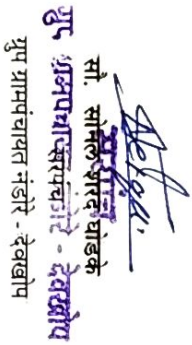 सरपंच
सौ. सोनल शरद घोडके
ग्रुप ग्रामपंचायत नंडोरे - देवखोप
सरपंच
ग्रुप ग्रामपंचायत नंडोरे - देवखोप